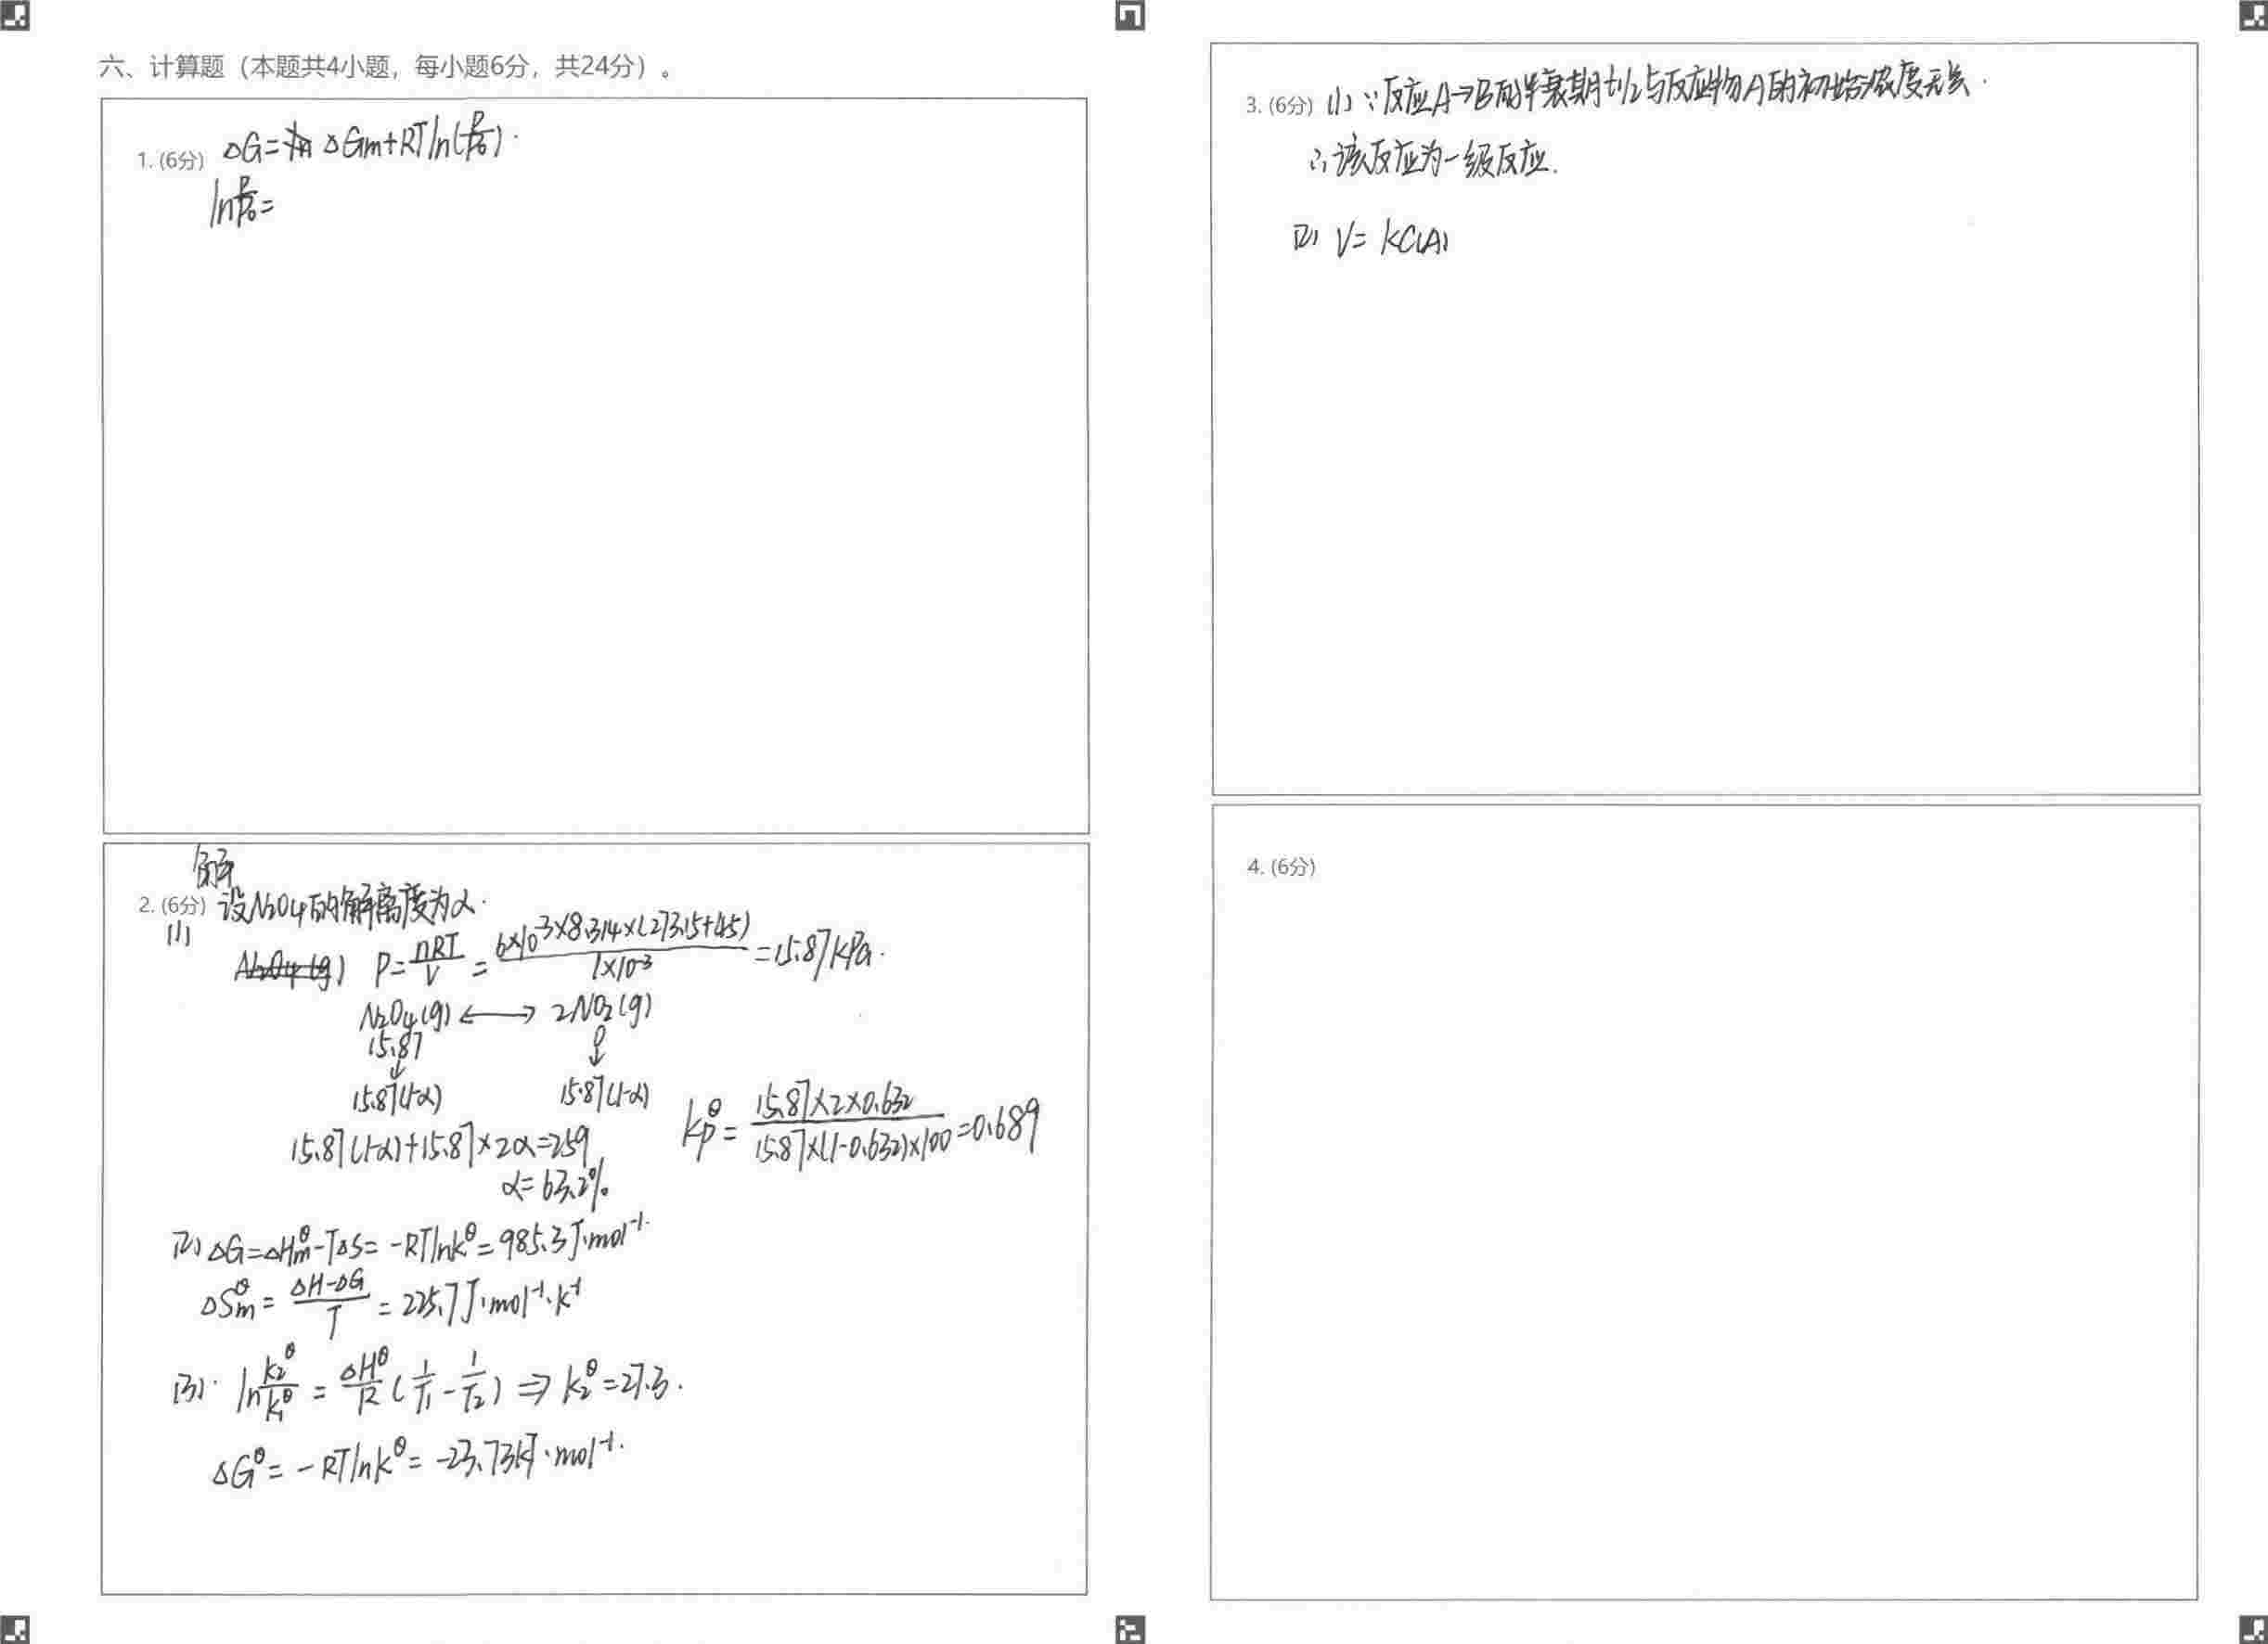 六、计算题（本题共4小题，每小题6分，共24分）。
1. (6分) ΔG= ΔGm+RTln(P/P0).
ln P/P0=
解
2. (6分) 设N2O4的解离度为α.
(1)
N2O4(g) P=nRT/V=6×10^3×8.314×(273.15+45)/1×10^-3=15.87kPa.
N2O4(g) ⟷ 2NO2(g)
15.87 0
↓ ↓
15.87(1-α) 15.87(1-α)
15.87(1-α)+15.87×2α=259
α=63.2%
Kp^θ=15.87×2×0.632/15.87×(1-0.632)×100=0.689
(2) ΔG=ΔHm^θ-TΔS=-RTlnK^θ=985.3J·mol^-1.
ΔSm^θ=ΔH-ΔG/T=225.7J·mol^-1·K^-1
(3). ln K2^θ/K1^θ=ΔH^θ/R(1/T1-1/T2)⇒K2^θ=27.3.
ΔG^θ=-RTlnK^θ=-23.73kJ·mol^-1.
3. (6分) (1) ∵反应A→B的半衰期t1/2与反应物A的初始浓度无关.
∴该反应为一级反应.
(2) V=kC(A)
4. (6分)